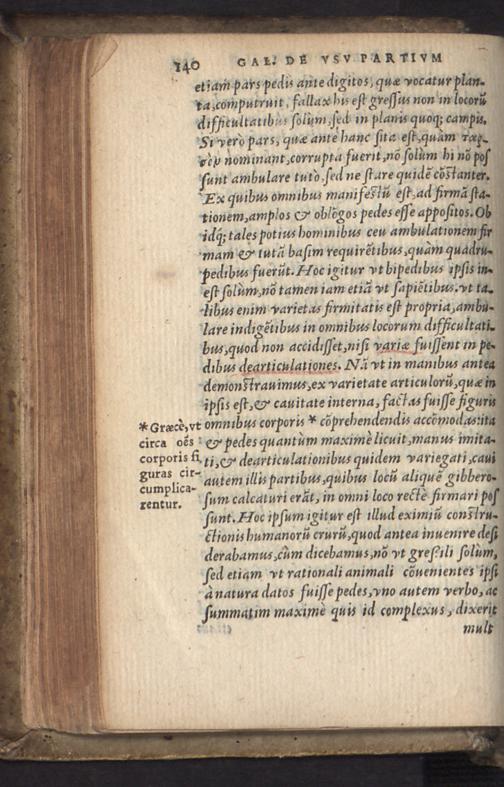 140 GAL. DE VSV PARTIVM
etiam pars pedis ante digitos, quæ vocatur plan-
ta, computruit, fallax his est gressus non in locorū
difficultatibus solùm, sed in planis quoq; campis.
Si verò pars, quæ ante hanc sita est, quàm ταρ-
σὸν nominant, corrupta fuerit, nō solùm hi nō pos
sunt ambulare tutò, sed ne stare quidē cōstanter.
Ex quibus omnibus manifestū est, ad firmā sta-
tionem, amplos & oblōgos pedes esse appositos. Ob
idq; tales potius hominibus ceu ambulationem fir
mam & tutā basim requirētibus, quàm quadru-
pedibus fuerūt. Hoc igitur vt bipedibus ipsis in-
est solùm, nō tamen iam etiā vt sapiētibus. vt ta-
libus enim varietas firmitatis est propria, ambu-
lare indigētibus in omnibus locorum difficultati-
bus, quod non accidisset, nisi variæ fuissent in pe-
dibus dearticulationes. Nā vt in manibus antea
demonstrauimus, ex varietate articulorū, quæ in
ipsis est, & cauitate interna, factas fuisse figuris
omnibus corporis * cōprehendendis accōmodas: ita
& pedes quantùm maximè licuit, manus imita-
ti, & dearticulationibus quidem variegati, caui
autem illis partibus, quibus locū aliquē gibbero-
sum calcaturi erāt, in omni loco rectè firmari pos
sunt. Hoc ipsum igitur est illud eximiū constru-
ctionis humanorū crurū, quod antea inuenire desi
derabamus, cùm dicebamus, nō vt gressili solùm,
sed etiam vt rationali animali cōuenientes ipsi
à natura datos fuisse pedes, vno autem verbo, ac
summatim maximè quis id complexus, dixerit
mult
* Græcè, vt
circa oēs
corporis fi
guras cir-
cumplica-
rentur.